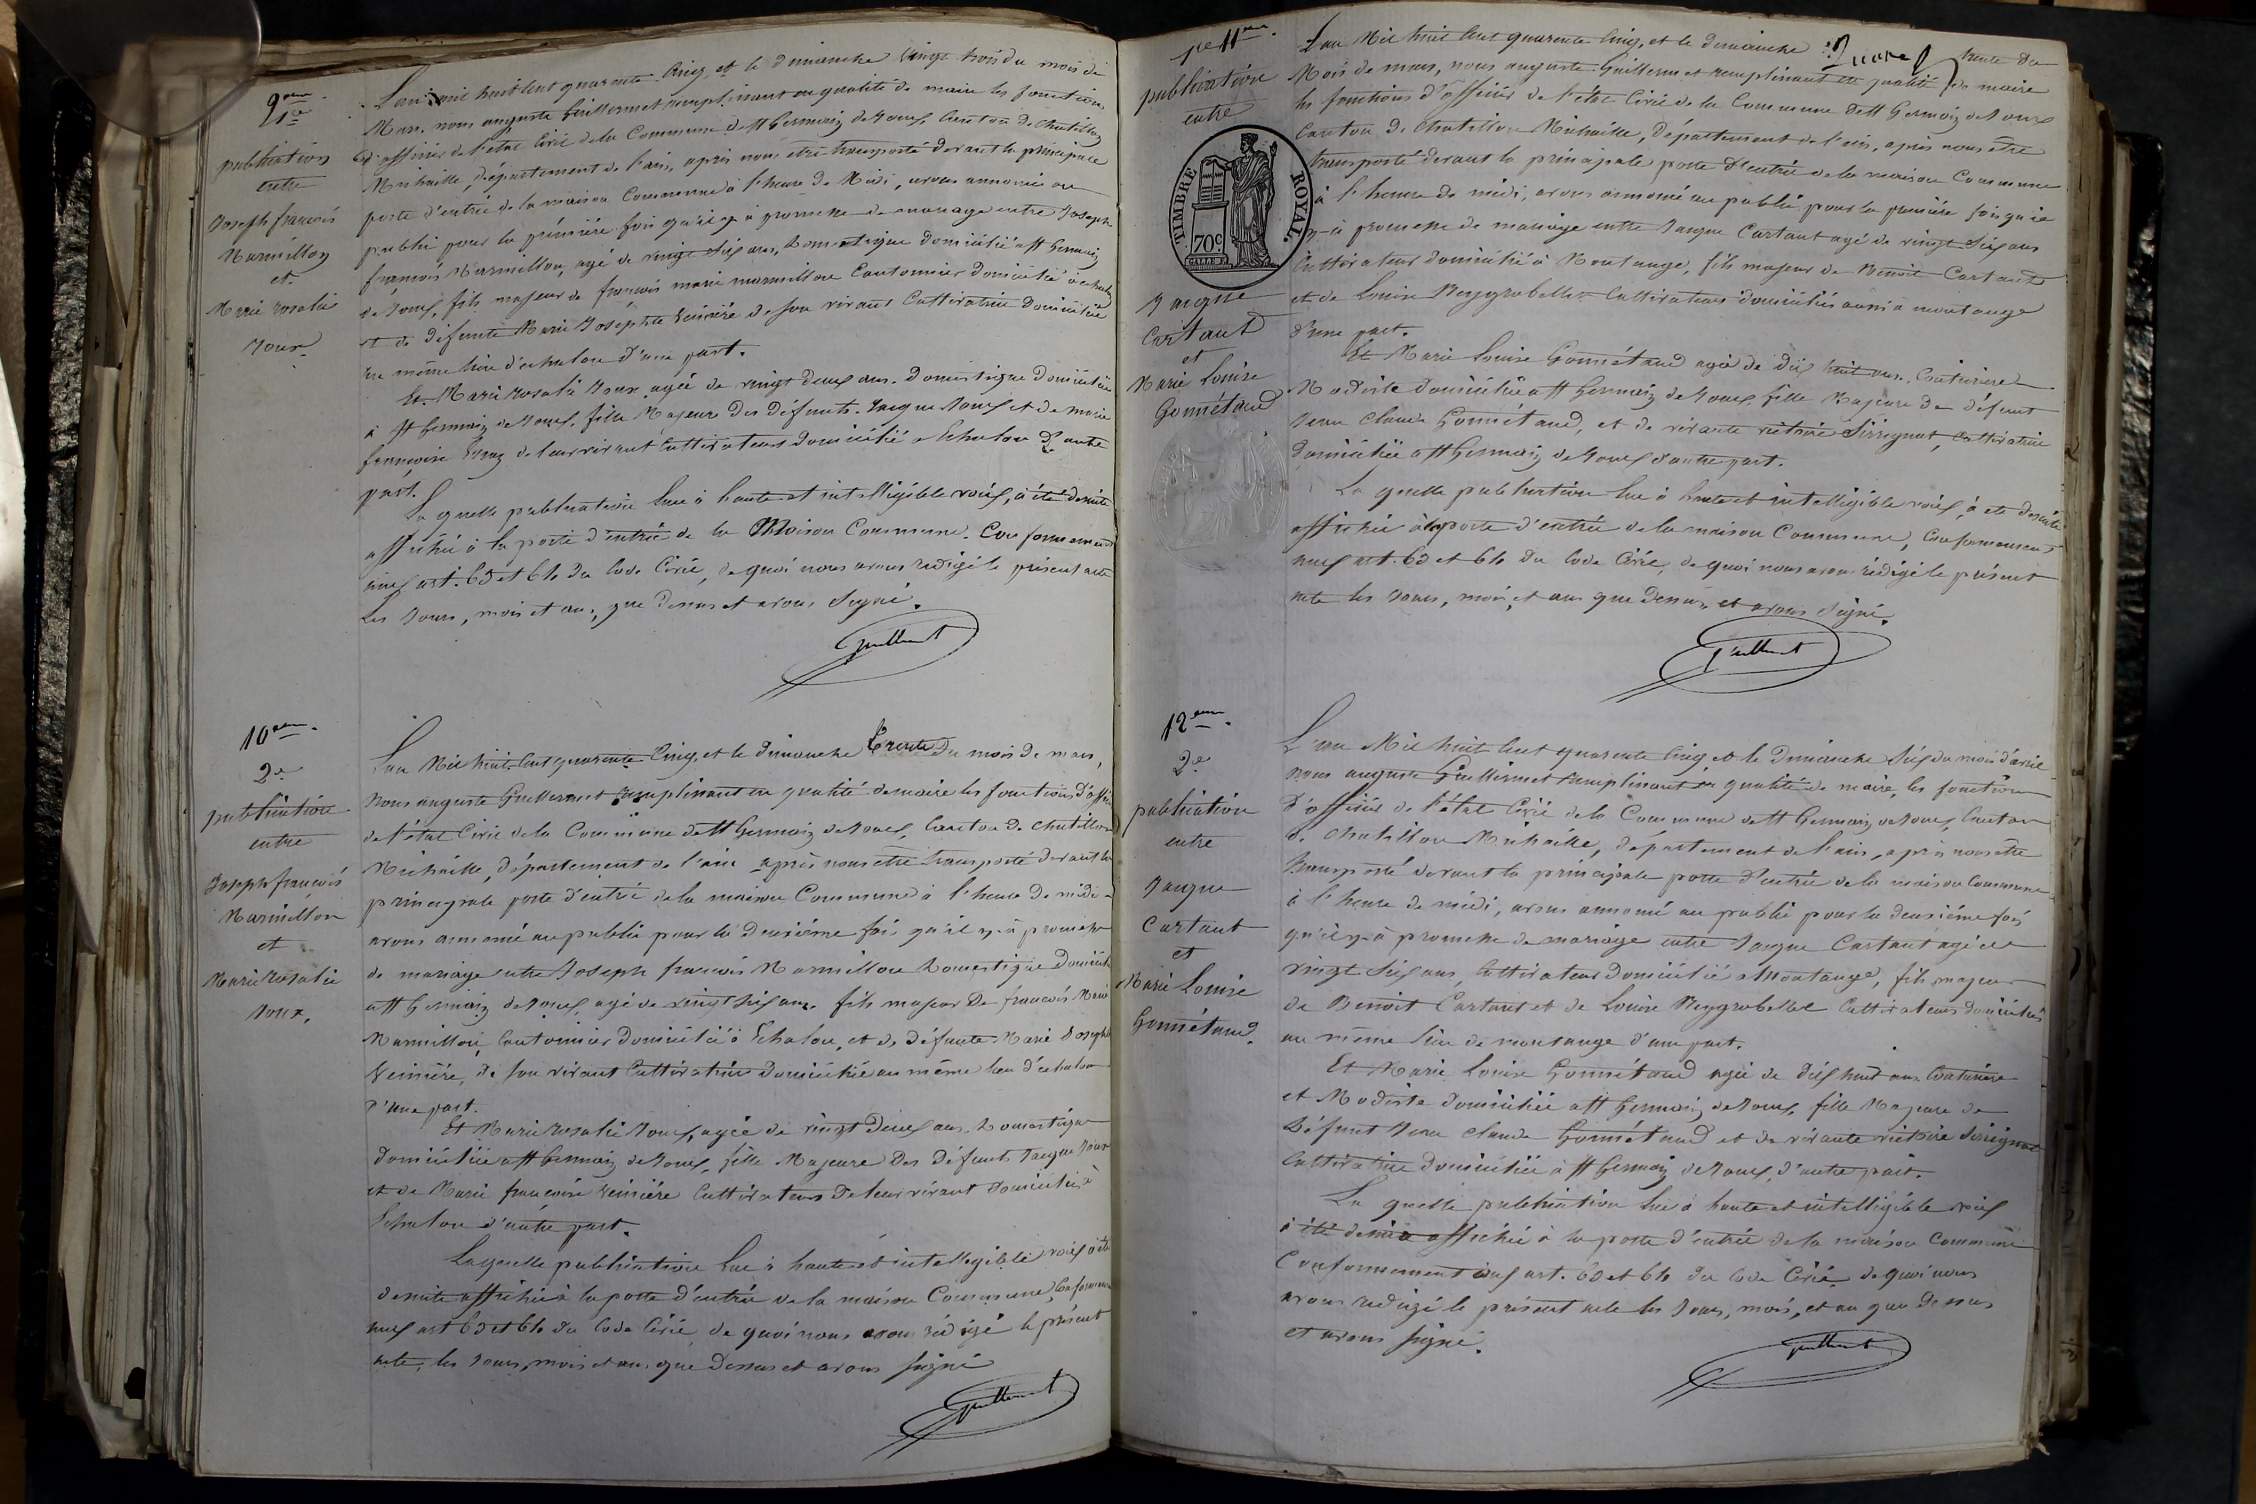 9eme
1e
publication
entre
Joseph françois
Marmillon
et
Marie rosalie
Joux
L'an mil huit cent quarente cinq, et le dimanche vingt trois du mois de
Mars, nous auguste Guillermet remplissant en qualité de maire les fonctions
d'officier de l'état Civil de la Commune de St Germain de Joux, Canton de Chatillon
Michaille, département de l'ain, après nous être transporté devant la principale
porte d'entrée de la maison Commune à l'heure de Midi, avons annoncé au
public pour la première fois qu'il y a promesse de mariage entre Joseph
françois Marmillon, agé de vingt six ans, Domestique domicilié à St Germain
de Joux, fils majeur de françois marie marmillon Cantonnier domicilié à échalon
et de défunte Marie Josephte de son vivant Cultivatrice domiciliée
au même lieu d'échalon d'une part.
Et Marie rosalie Joux agée de vingt deux ans. Domestique domiciliée
à St Germain de Joux, fille Majeure des défunts Jacque Joux et de marie
françoise de leur vivant Cultivateurs domicilié à Echalon d'autre
part.
La quelle publication lue à haute et intelligible voix, à été de suite
affichée à la porte d'entrée de la Maison Commune. Conformement
aux art. 63 et 64 du Code Civil, de quoi nous avons redigé le présent acte
Les Jours, mois et an, que dessus et avons Signé.
Guillermet
10eme
2e
publication
entre
Joseph françois
Marmillon
et
Marie Rosalie
Joux.
L'an Mil huit Cent quarente Cinq, et le dimanche trente du mois de mars,
Nous auguste Guillermet remplissant en qualité de maire les fonctions d'officier
de l'état Civil de la Commune de St Germain de Joux, Canton de Chatillon
Michaille, département de l'ain après nous être transporté devant la
principale porte d'entrée de la maison Commune à l'heure de midi
avons annoncé au public pour la deuxième fois qu'il y a promesse
de mariage entre Joseph françois Marmillon Domestique domicilié
à St Germain de Joux, agé de vingt six ans fils majeur De françois Marie
Marmillon, Cantonnier domicilié à Echalon, et de défunte Marie Josephte
de son vivant Cultivatrice domiciliée au même lieu d'échalon
d'une part.
Et Marie rosalie Joux, agée de vingt deux ans Domestique
domiciliée à St Germain de Joux, fille Majeure des défunts Jacque Joux
et de Marie françoise Cultivateurs de leur vivant domiciliés à
Echalon d'autre part.
Laquelle publication lue à haute et intelligible voix à été
de suite affichée à la porte d'entrée de la maison Commune, Conformement
aux art 63 et 64 du Code Civil, de quoi nous avons rédigé le présent
acte, les Jours, mois et an que dessus et avons signé
Guillermet
1e 11eme.
publication
entre
TIMBRE ROYAL.
70c
Jacque
Cartaut
et
Marie Louise
Gonnétand
L'an Mil huit Cent quarente Cinq, et le dimanche trente du
Mois de mars, nous auguste Guillermet remplissant en qualité de maire
les fonctions d'officier de l'état Civil de la Commune de St Germain de Joux
Canton de Chatillon Michaille, département de l'ain, après nous être
transporté devant la principale porte d'entrée de la maison Commune
à l'heure de midi, avons annoncé au public pour la première fois qu'il
y a promesse de mariage entre Jacque Cartaut agé de vingt six ans
Cultivateur domicilié à Montange, fils majeur de Benoit Cartaut
et de Louise Cultivateurs domiciliés aussi à montange
d'une part.
Et Marie Louise Gonnétand agée de dix huit ans, Couturiere
Modiste domiciliée à St Germain de Joux, fille Majeure de défunt
Jean Claude Gonnétand, et de vivante victoire Cultivatrice
domiciliée à St Germain de Joux d'autre part.
La quelle publication lue à haute et intelligible voix, à été de suite
affichée à la porte d'entrée de la maison Commune, Conformement
aux art. 63 et 64 du Code Civil, de quoi nous avons rédigé le présent
acte les Jours, mois, et an que dessus, et avons Signé.
Guillermet
12eme.
2e
publication
entre
Jacque
Cartaut
et
Marie Louise
Gonnétand.
L'an Mil huit Cent quarente Cinq et le Dimanche six du mois d'avril
nous auguste Guillermet remplissant en qualité de maire, les fonctions
d'officier de l'état Civil de la Commune de St Germain de Joux, Canton
de Chatillon Michaille, département de l'ain, après nous être
transporté devant la principale porte d'entrée de la maison Commune
à l'heure de midi, avons annoncé au public pour la deuxième fois
qu'il y a promesse de mariage entre Jacque Cartaut agé de
vingt six ans, Cultivateur domicilié à Montange, fils majeur
de Benoit Cartaut et de Louise Cultivateurs domiciliés
au même lieu de montange d'une part.
Et Marie Louise Gonnétand agée de dix huit ans Couturiere
et Modiste domiciliée à St Germain de Joux, fille Majeure de
Défunt Jean Claude Gonnétand et de vivante victoire
Cultivatrice domiciliée à St Germain de Joux, d'autre part.
La quelle publication lue à haute et intelligible voix
à été de suite affichée à la porte d'entrée de la maison Commune
Conformement aux art. 63 et 64 du Code Civil de quoi nous
avons redigé le présent acte les Jours, mois, et an que dessus
et avons signé.
Guillermet